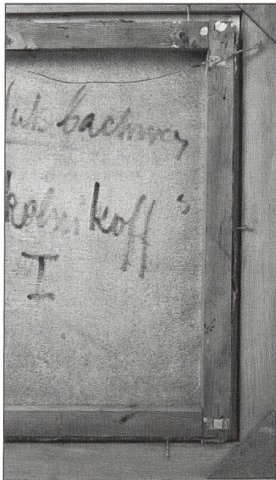 bachweg
kolnikoff"
I